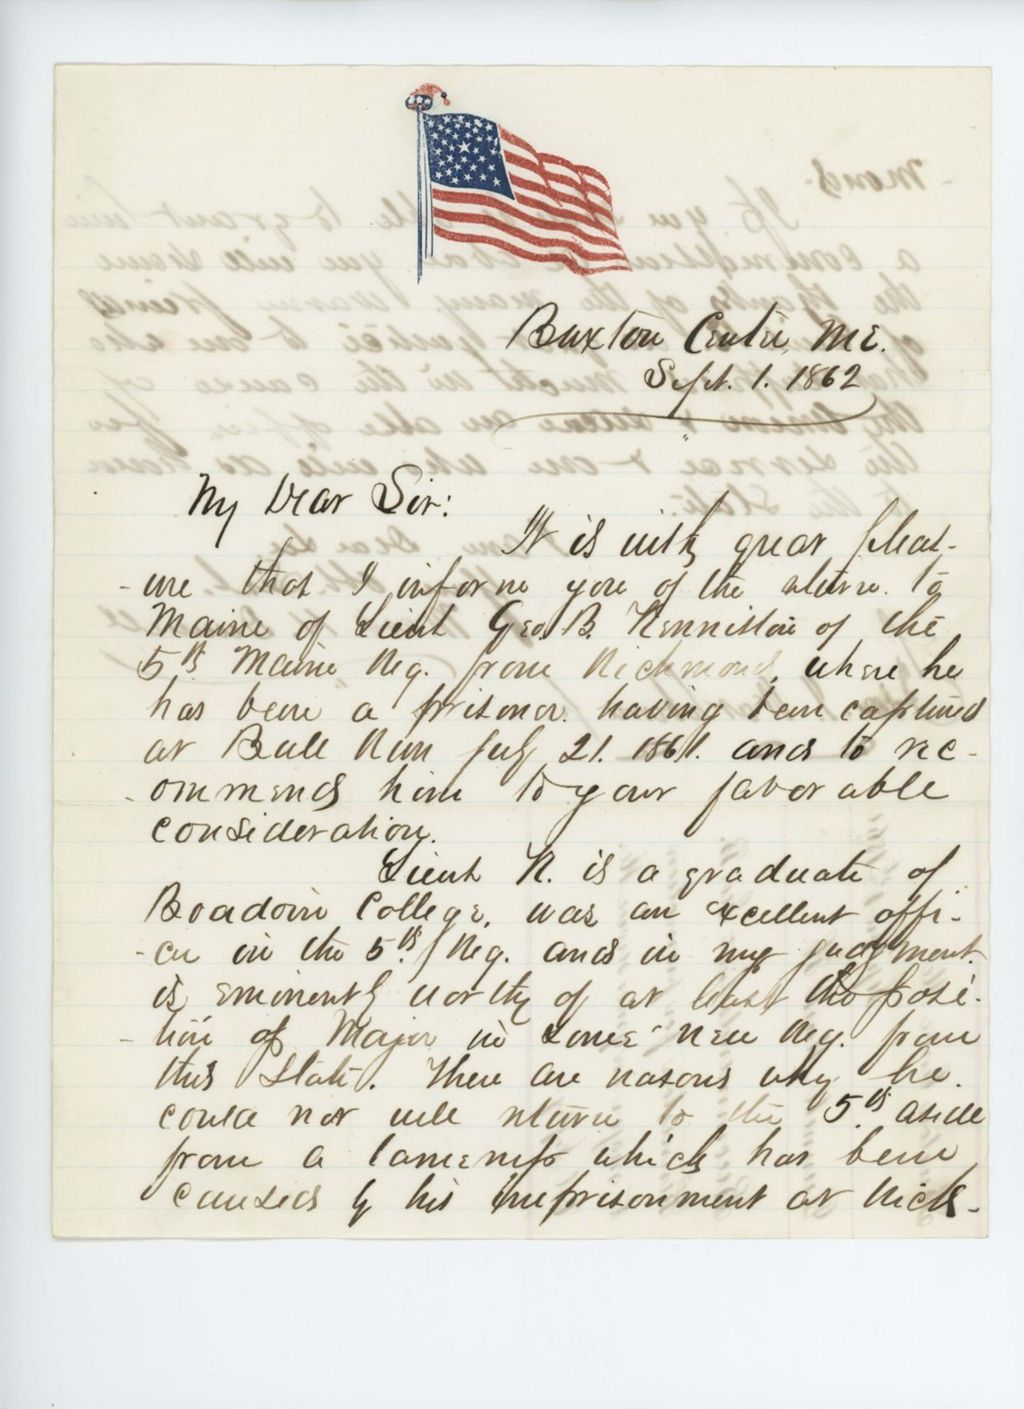 Buxton Center, Me.
Sept. 1. 1862
My Dear Sir:
It is with great pleas-
-ure that I inform you of the return to
Maine of Lieut Geo. B. Kenniston of the
5th Maine Reg. from Richmond, where he
has been a prisoner having been captured
at Bull Run July 21. 1861. and to rec-
-ommend him to your favorable
consideration.
Lieut K. is a graduate of
Boadoin College, was an excellent offi-
-cer in the 5th Reg. and in my judgment
is eminently worthy of at least the posi-
-tion of Major in some new Reg. from
this State. There are reasons why he
could not well return to the 5th aside
from a lameness which has been
caused by his imprisonment at Rich-